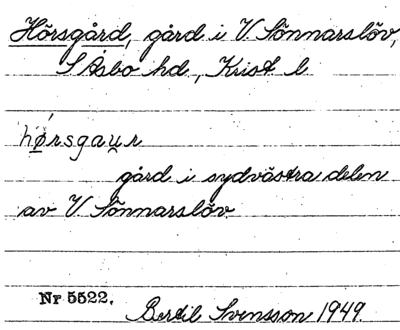 Hörsgård, gård i V. Sönnarslöv,
S Åsbo hd, Krist l
hǿ̱rsgau̯r
gård i sydvästra delen
av V Sönnarslöv
Nr 5522.
Bertil Svensson 1949.